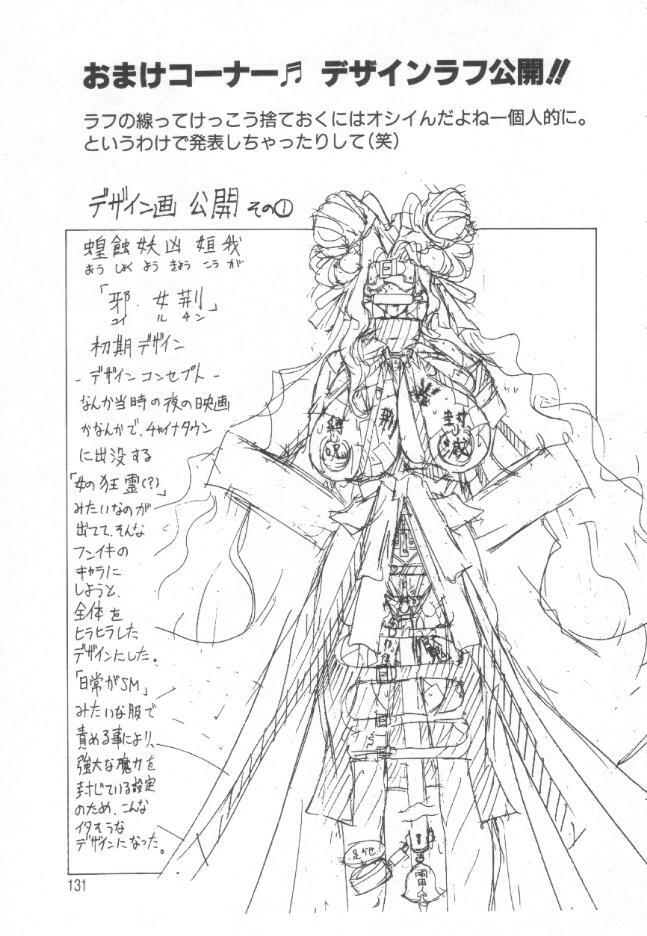 おまけコーナー♬ デザインラフ公開!!
ラフの線ってけっこう捨ておくにはオシイんだよねー個人的に。
というわけで発表しちゃったりして(笑)
デザイン画 公開 その①
蝗蝕妖凶 姮我
おう しょく よう きょう こう が
「邪 女荆」
ユイ ル チン
初期デザイン
- デザインコンセプト -
なんか当時の夜の映画
かなんかで、チャイナタウン
に出没する
「女の狂霊(?)」
みたいなのが
出てて、そんな
フンイキの
キャラに
しようと、
全体を
ヒラヒラした
デザインにした。
「日常がSM」
みたいな服で
責める事により、
強大な魔力を
封じている設定
のため、こんな
イタそうな
デザインになった。
縛
呪
荆
封
滅
足かせ
雷
131